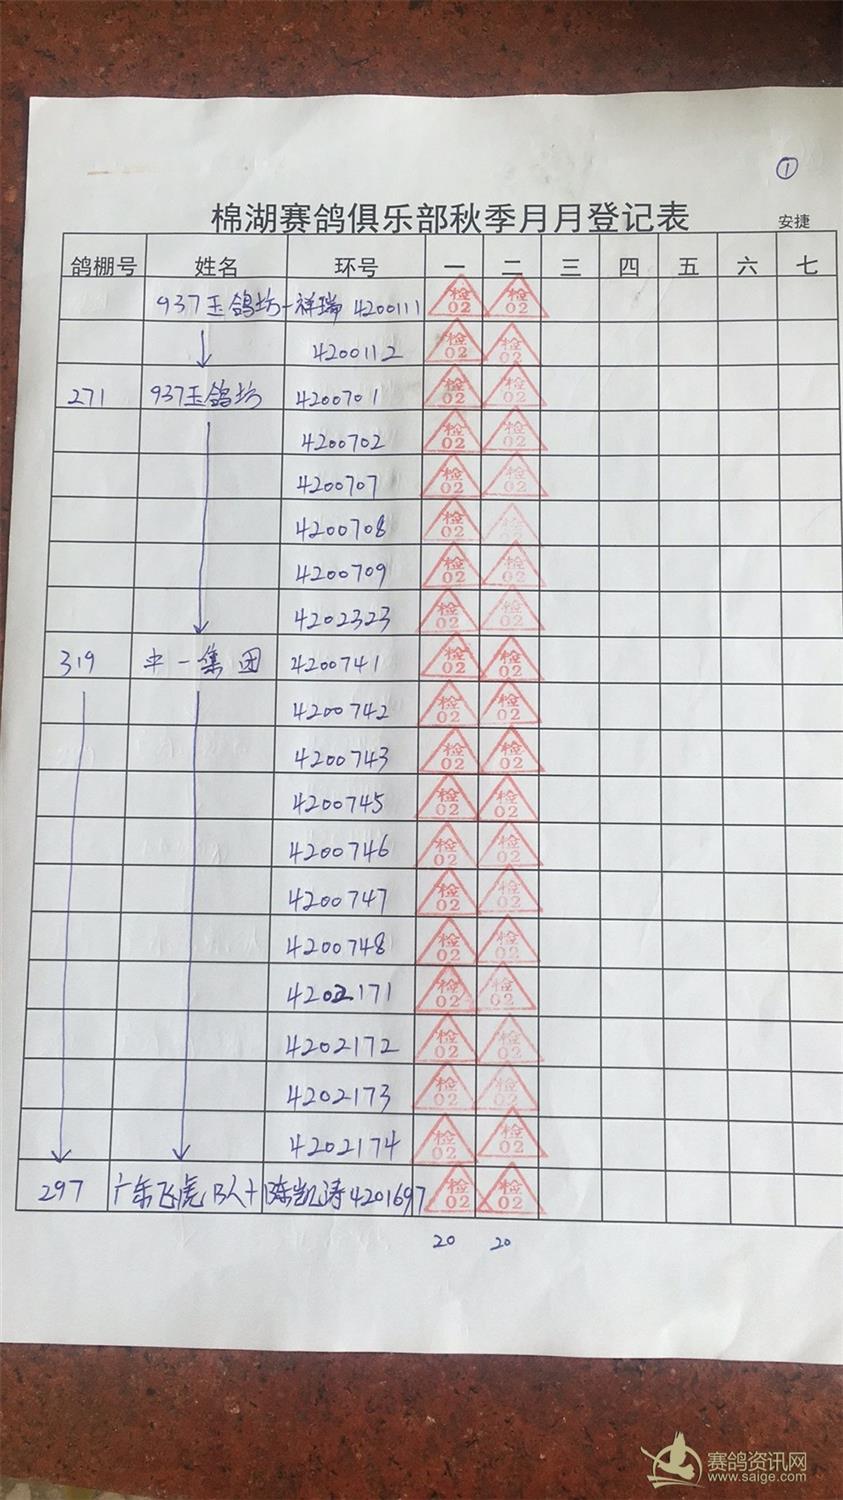 ①
棉湖赛鸽俱乐部秋季月月登记表
安捷
鸽棚号 姓名 环号 一 二 三 四 五 六 七
937玉鸽坊-祥瑞 4200111 检02 检02
4200112 检02 检02
271 937玉鸽坊 4200701 检02 检02
4200702 检02 检02
4200707 检02 检02
4200708 检02 检02
4200709 检02 检02
4202323 检02 检02
319 一集团 4200741 检02 检02
4200742 检02 检02
4200743 检02 检02
4200745 检02 检02
4200746 检02 检02
4200747 检02 检02
4200748 检02 检02
4202171 检02 检02
4202172 检02 检02
4202173 检02 检02
4202174 检02 检02
297 广东飞虎 队+陈凯涛 4201697 检02 检02
20 20
赛鸽资讯网
www.saige.com